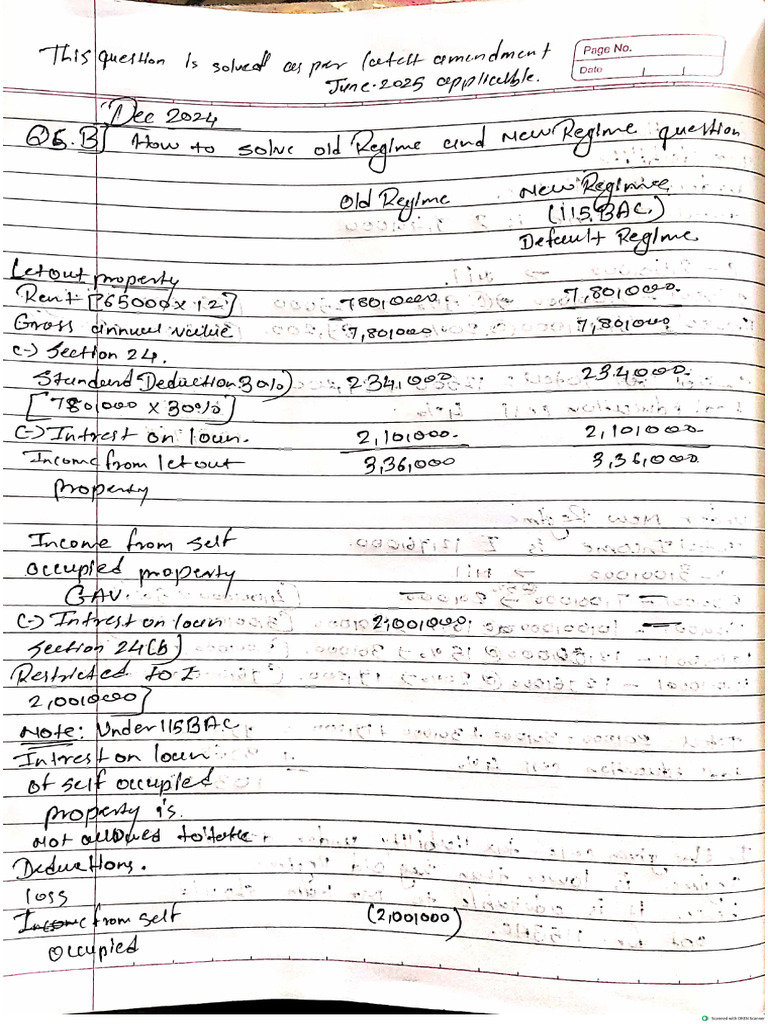 This question is solved as per latest amendment
June-2025 applicable.
Page No.
Date
Dec 2024
Q5.B] How to solve old Regime and New Regime question
Old Regime New Regime
(115.BAC.)
Default Regime
Letout property
Rent [65000 x 12] 7,80,000. 7,80,000.
Gross annual value 7,80,000 7,80,000
(-) Section 24.
Standard Deduction 30%) 2,34,000 234000.
[780,000 x 30%]
(-) Intrest on loan. 2,10,000. 2,10,000
Income from letout 3,36,000 3,36,000.
property
Income from self
occupied property
GAV. — —
(-) Intrest on loan 2,00,000. —
Section 24(b)
Restricted to I
2,00,000]
Note: Under 115BAC
Intrest on loan
of self occupied
property is.
not allowed to take
Deductions.
loss
from self (2,00,000)
occupied
Scanned with OKEN Scanner